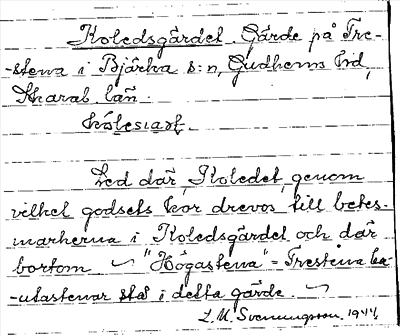 Koledsgärdet. Gärde på Fre-
-stena i Bjärka s:n, Gudhems hd,
Skarab. län.
Led där, Koledet, genom
vilket godsets kor drevos till betes-
markerna i Koledsgärdet och där
bortom ~ "Högastena" = Frestena ba-
-utastenar stå i detta gärde. ~
L. M. Svenungsson. 1944.